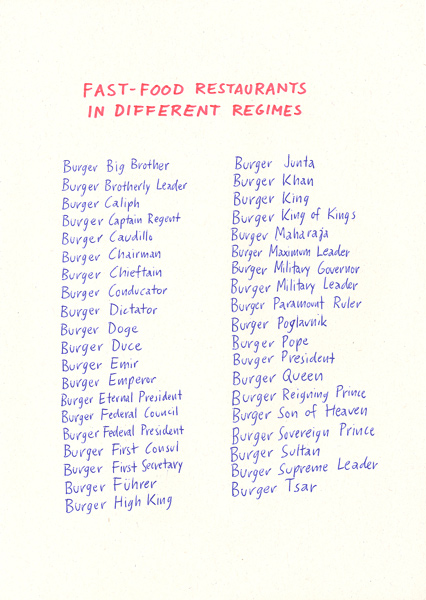 FAST-FOOD RESTAURANTS
IN DIFFERENT REGIMES
Burger Big Brother
Burger Brotherly Leader
Burger Caliph
Burger Captain Regent
Burger Caudillo
Burger Chairman
Burger Chieftain
Burger Conducator
Burger Dictator
Burger Doge
Burger Duce
Burger Emir
Burger Emperor
Burger Eternal President
Burger Federal Council
Burger Federal President
Burger First Consul
Burger First Secretary
Burger Führer
Burger High King
Burger Junta
Burger Khan
Burger King
Burger King of Kings
Burger Maharaja
Burger Maximum Leader
Burger Military Governor
Burger Military Leader
Burger Paramount Ruler
Burger Poglavnik
Burger Pope
Burger President
Burger Queen
Burger Reigning Prince
Burger Son of Heaven
Burger Sovereign Prince
Burger Sultan
Burger Supreme Leader
Burger Tsar